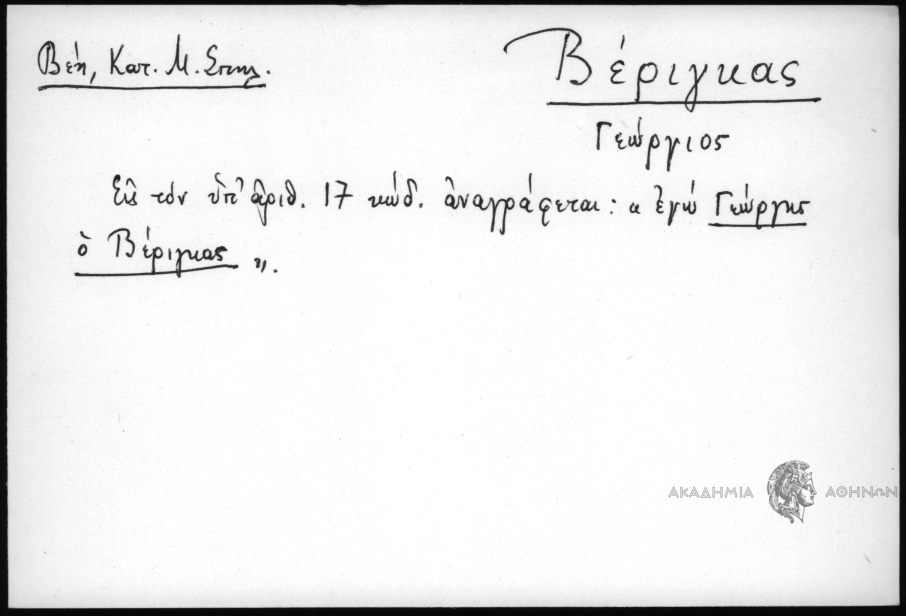 Βέη, Κατ. Μ. Σπηλ.
Βέριγκας
Γεώργιος
Εἰς τόν ὑπ' ἀριθ. 17 κώδ. ἀναγράφεται: « ἐγώ Γεώργης
ὁ Βέριγκας ».
ΑΚΑΔΗΜΙΑ ΑΘΗΝΩΝ